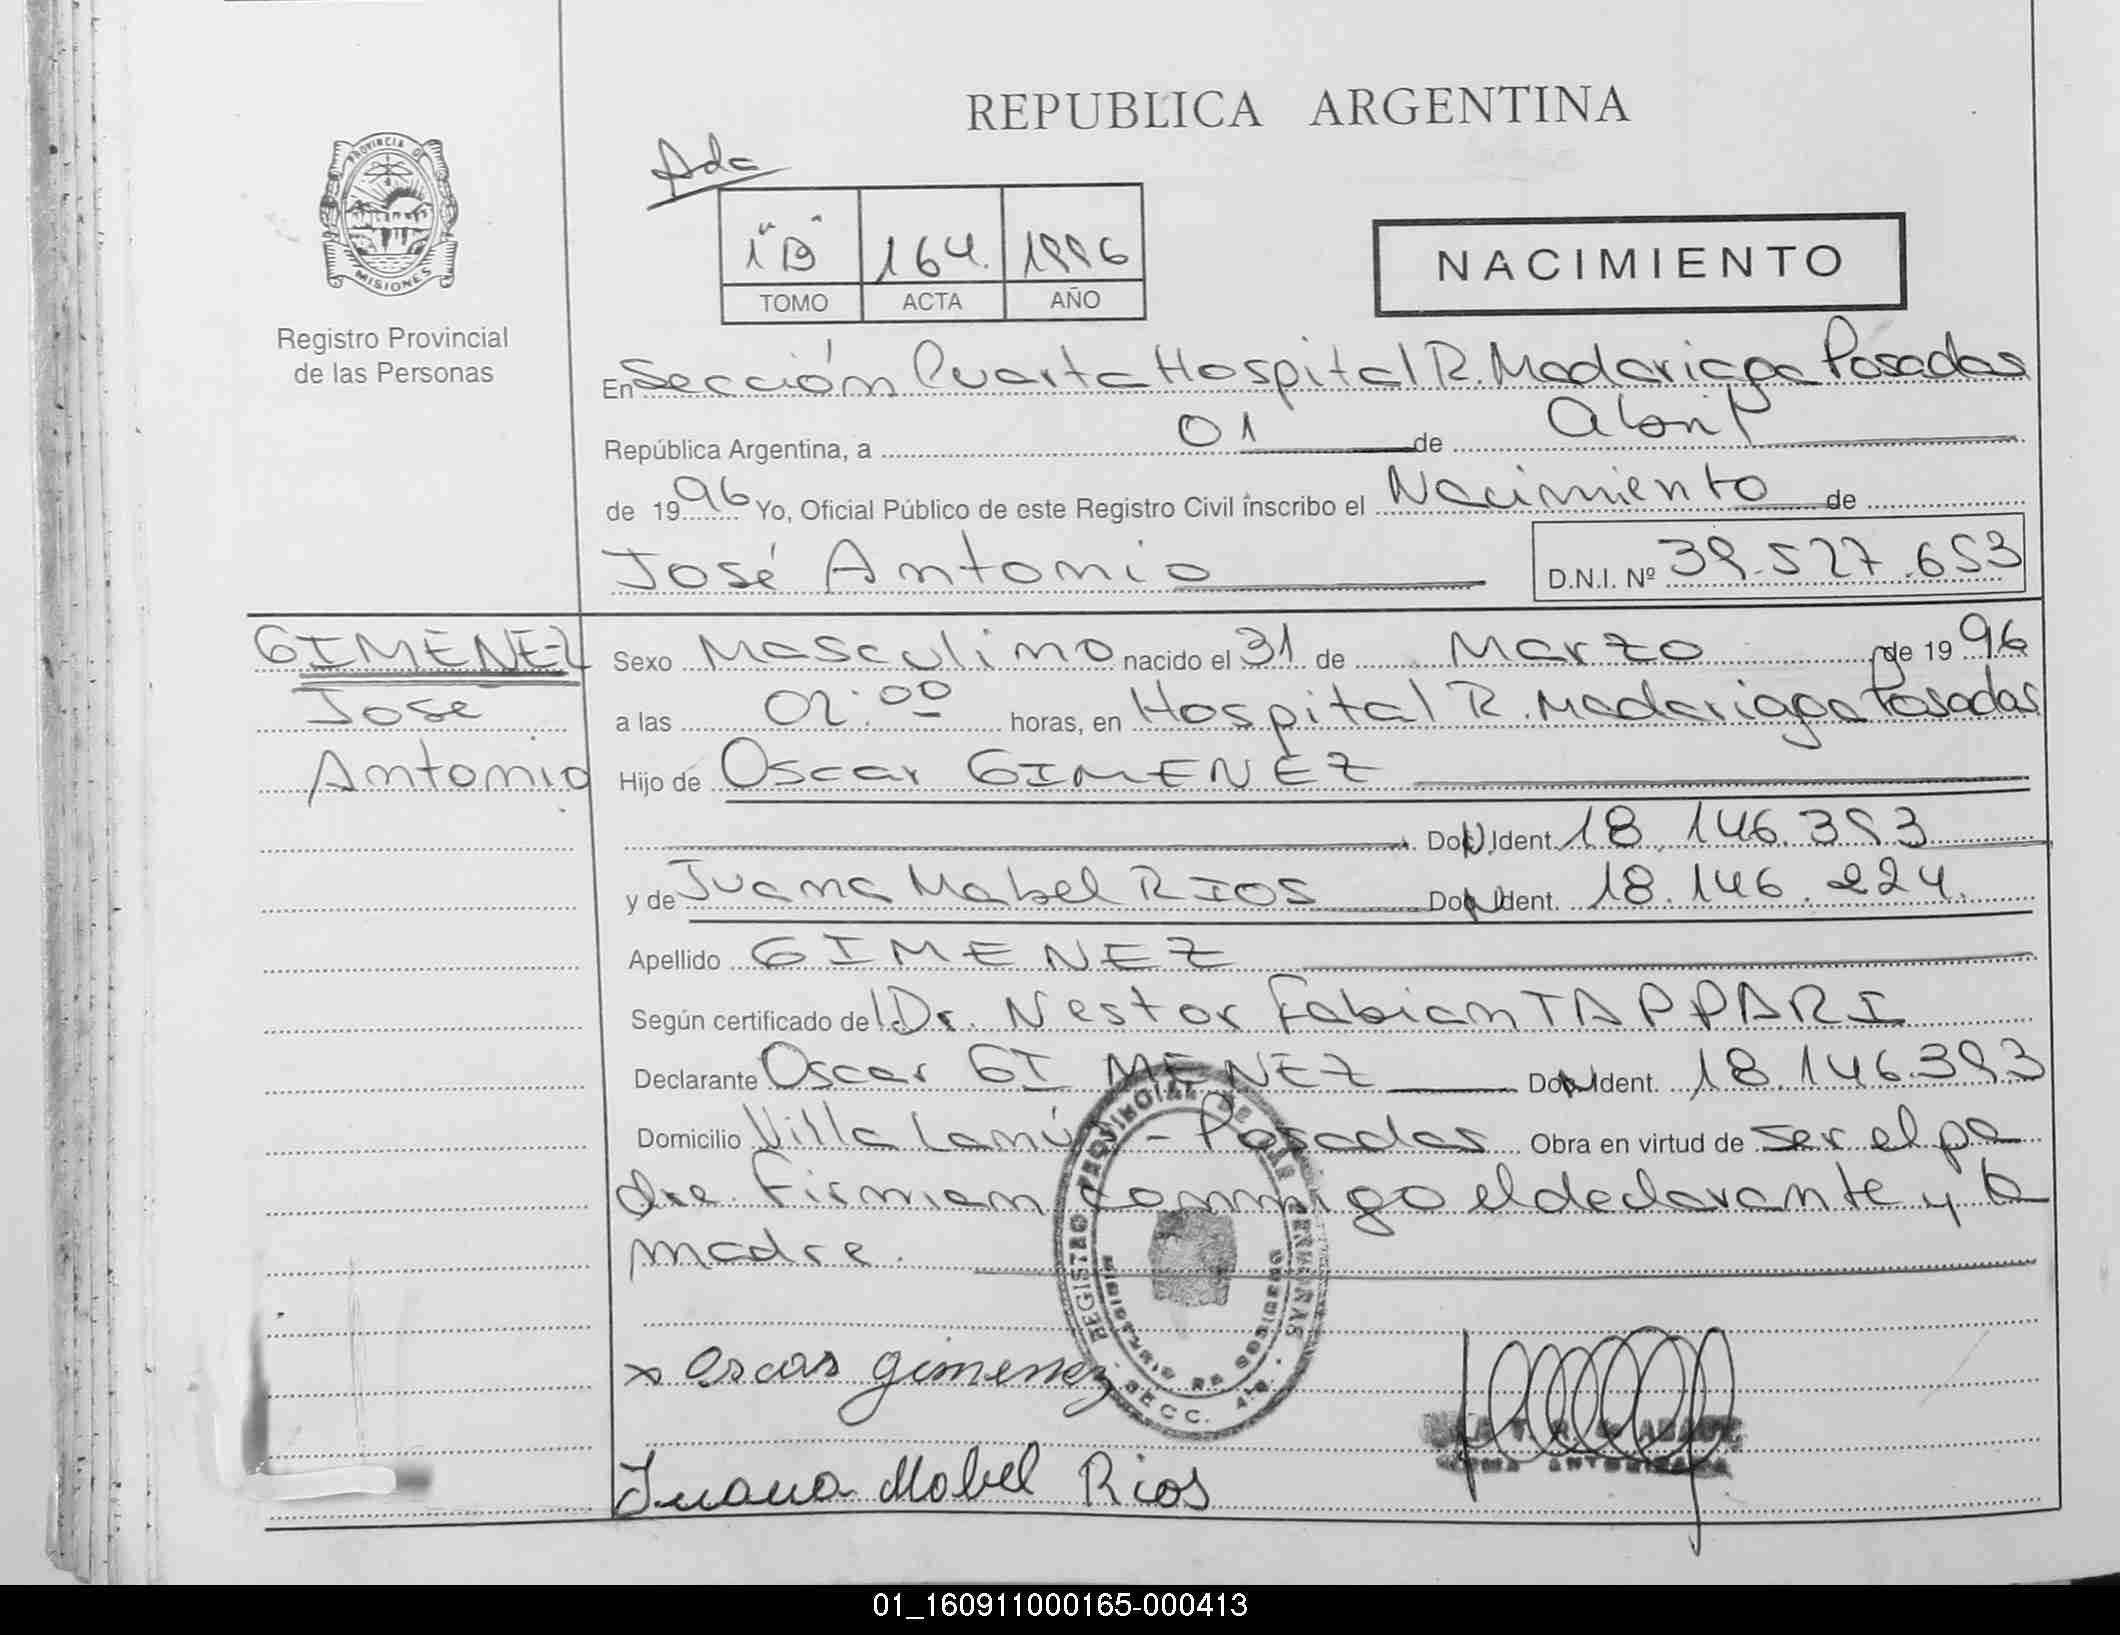 REPUBLICA ARGENTINA
PROVINCIA DE
MISIONES
Registro Provincial
de las Personas
Ada
1 "B" 164. 1996
TOMO ACTA AÑO
NACIMIENTO
En Sección Cuarta Hospital R. Madariaga Posadas
República Argentina, a 01 de abril
de 1996 Yo, Oficial Público de este Registro Civil inscribo el Nacimiento de
José Antonio D.N.I. Nº 39.527.653
GIMENEZ
José
Antonio
Sexo Masculino nacido el 31 de Marzo de 1996
a las 02:00 horas, en Hospital R. Madariaga Posadas
Hijo de Oscar GIMENEZ
Ident. 18.146.393
y de Juana Mabel RIOS Ident. 18.146.224.
Apellido GIMENEZ
Según certificado del Dr. Nestor Fabian TAPPARI
Declarante Oscar GIMENEZ Ident. 18.146.393
Domicilio Villa Lanús - Posadas Obra en virtud de ser el pa
dre. Firman conmigo el declarante y la
madre.
REGISTRO PROVINCIAL DE LAS PERSONAS
SECC. 4ta.
x oscar gimenez
Juana Mabel Rios
FIRMA AUTORIZADA
01_160911000165-000413